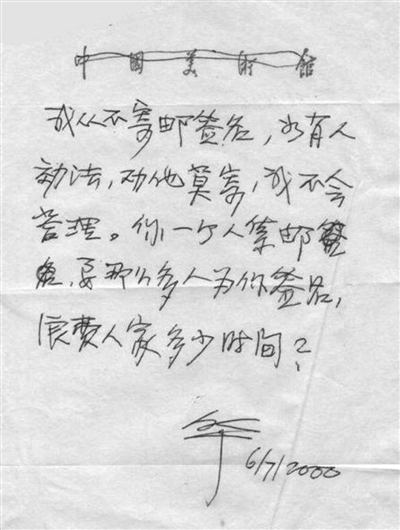 中國美術館
我从不寄邮签名，如有人
効法，劝他莫寄，我不会
管理。你一个人集邮签
名，要那么多人为你签名，
浪费人家多少时间？
6/7/2000